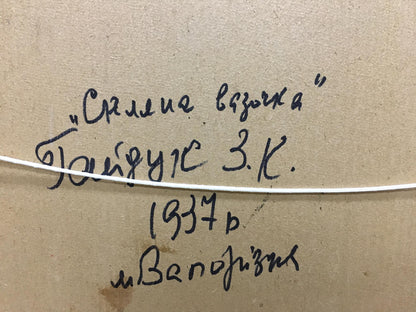 „Скляна вазочка"
Гайдук З.К.
1937р
м Запоріжжя